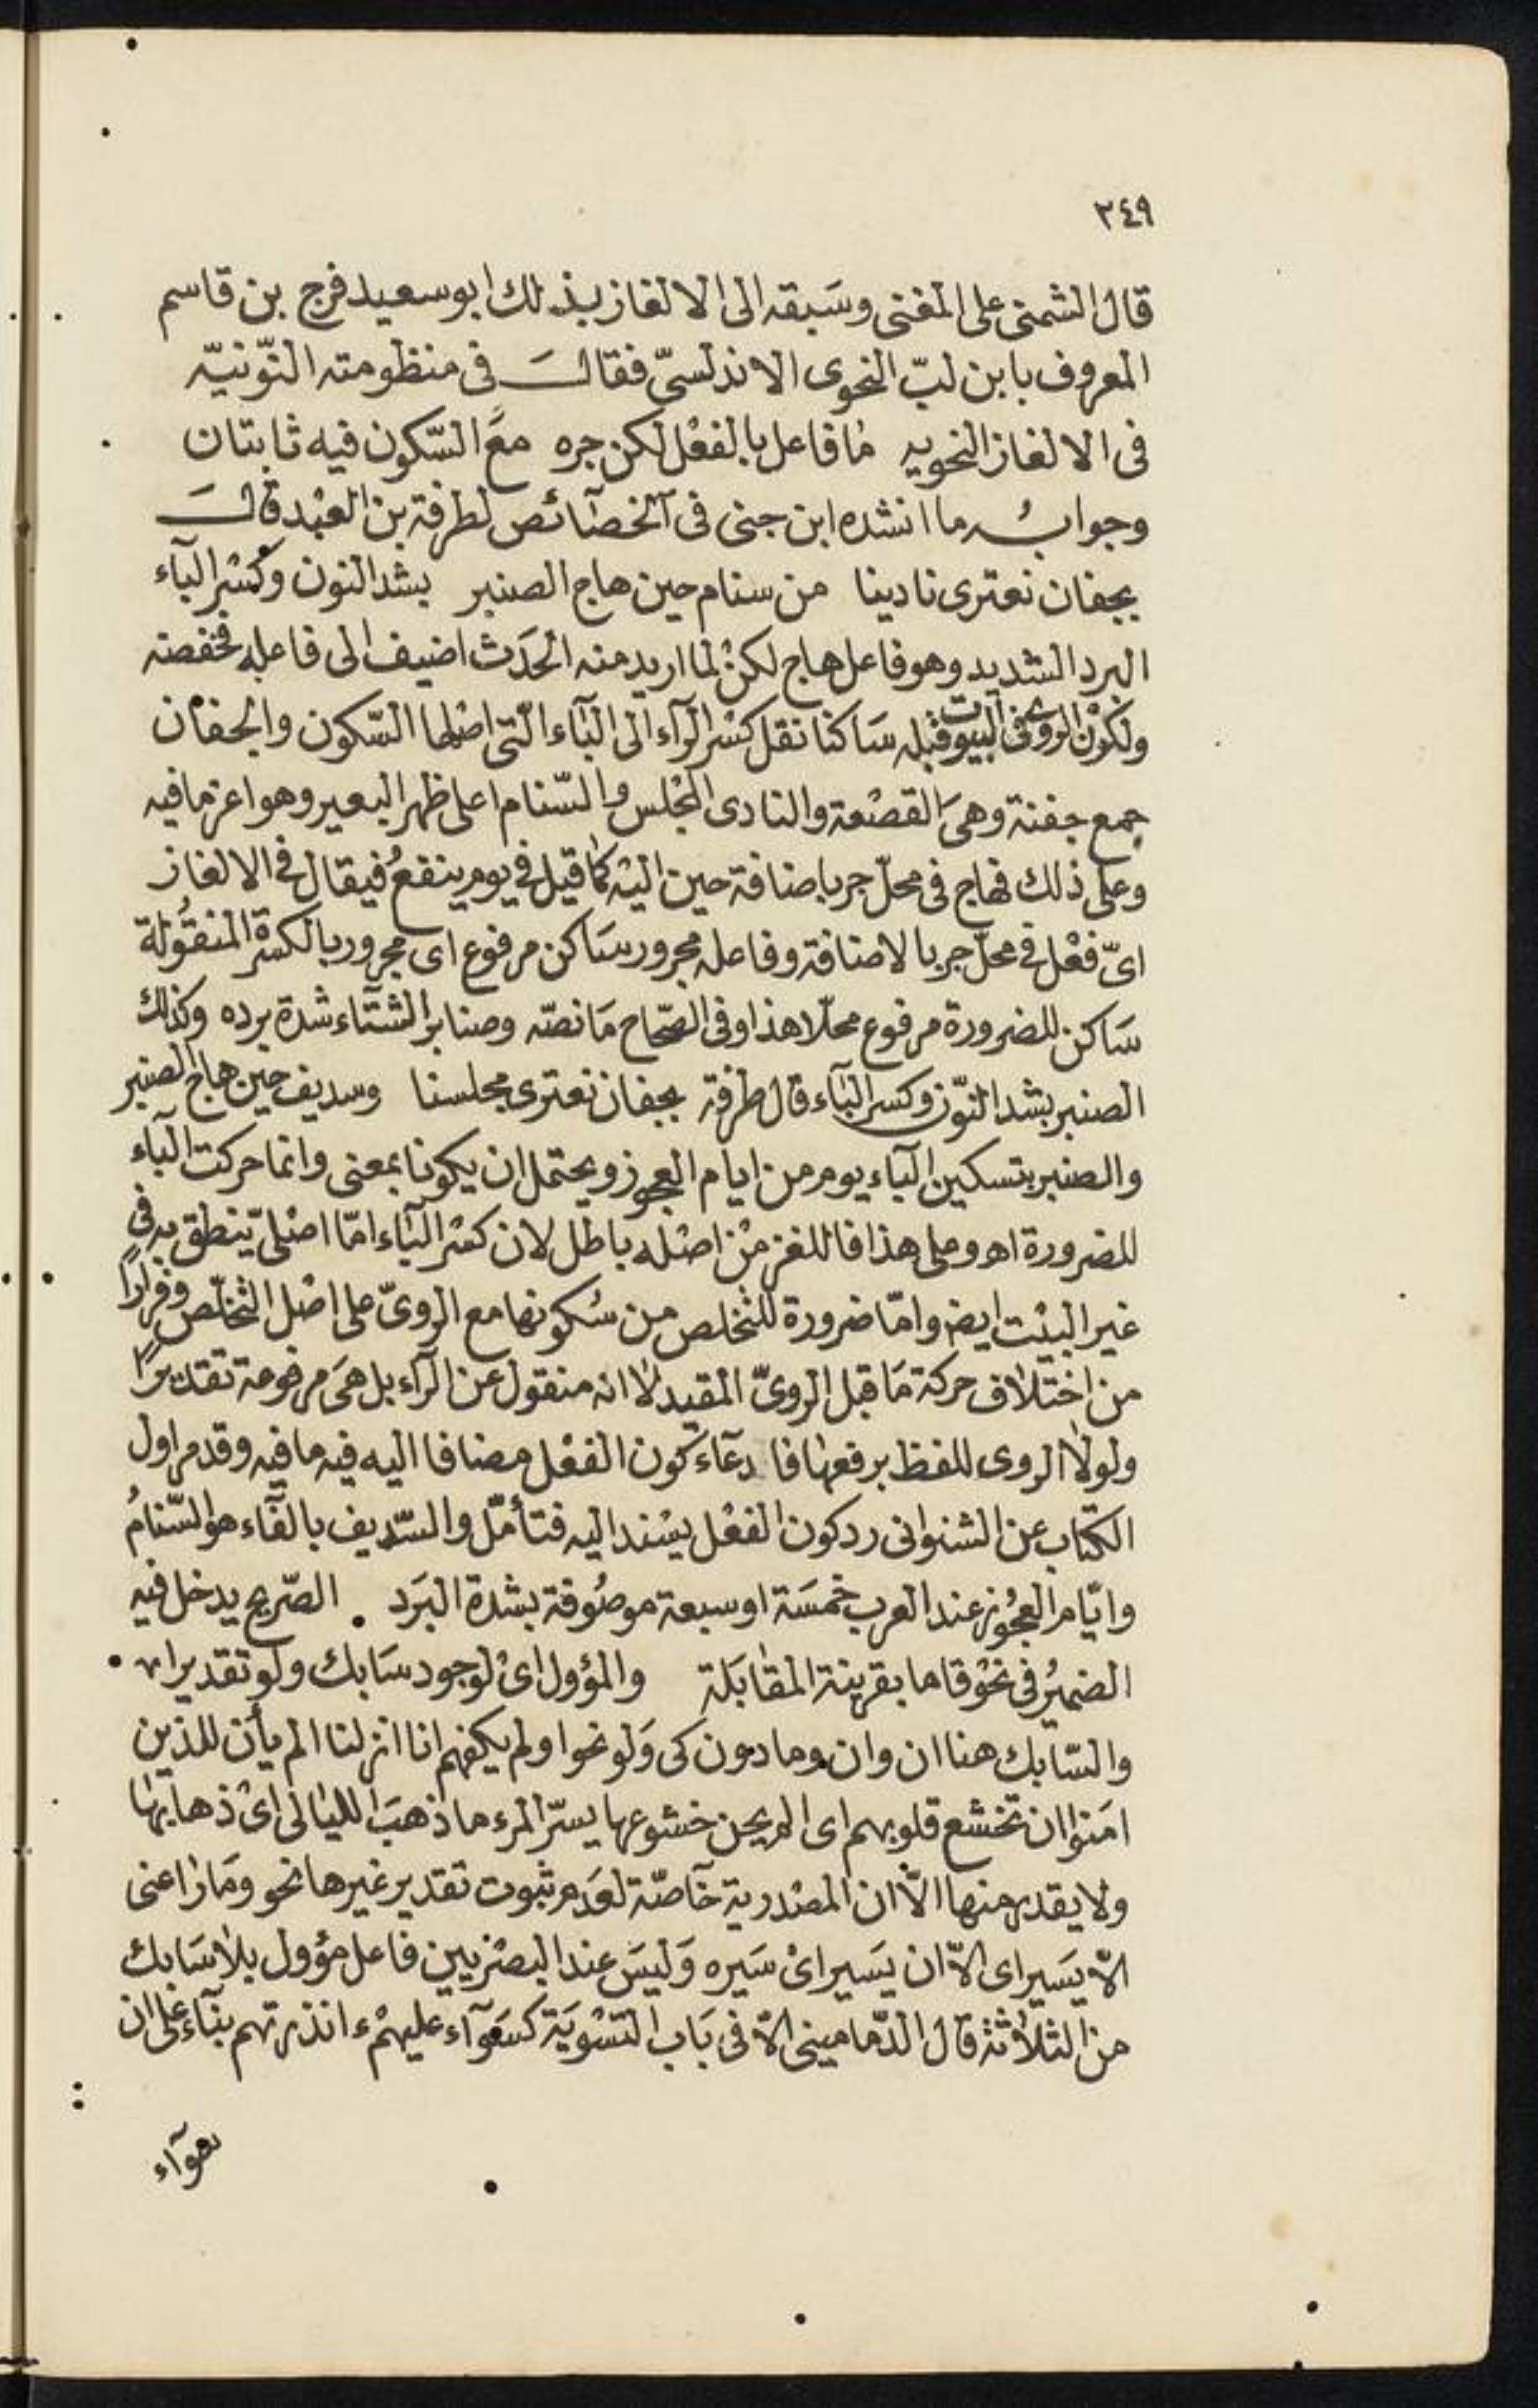 ٢٤٩
قال الشمنى على المغنى وسَبقه الى الالغاز بذلك ابو سعيد فرج بن قاسم
المعروف بابن لبّ النحوى الاندلسىّ فقالَ فى منظومته النّونيّه
فى الالغاز النحويه مٰا فاعل بالفعْل لكن جره معَ السّكون فيه ثابتان
وجوابُه ما انشده ابن جنى فى الخصآئص لطرفة بن العبْد قالَ
بجفان نعترى نادينا من سنام حين هاج الصنبر بشد النون وكسْر البآء
البرد الشديد وهو فاعل هاج لكنْ لما اريد منه الحدَث اضيف الى فاعله فخفضته
ولكوْن الروى فى البيت وقبله سَاكنا نقل كسْر الرآء الى البآء الّتى اصْلها السّكون والجفان
جمع جفنة وهىَ القصْعة والنادى المجْلس والسّنام اعلى ظهر البعير وهو اعز ما فيه
وعلى ذلك فهاج فى محلّ جر باضافة حين اليْه كما قيل فى يوم ينفعُ فيقال فى الالغاز
اىّ فعْل فى محلّ جر بالاضافة وفاعله مجرور سَاكن مرفوع اى مجرور بالكسْرة المنقُولة
سَاكن للضرورة مرفوع محلّا هذا وفى الصّحاح مَا نصّه وصنابر الشتآء شدة برده وكذلك
الصنبر بشد النّون وكسر البآء قال طرفة بجفان نعترى مجلسنا وسديف حين هاج الصنبر
والصنبر بتسكين البآء يوم من ايام العجوز ويحتمل ان يكونا بمعنى وانما حركت البآء
للضرورة اهـ وعلى هذا فاللغز منْ اصْله باطل لان كسْر البآء امّا اصْلىّ ينطق به فى
غير البيْت ايضا وامّا ضرورة للتخلص من سُكونها مع الروىّ على اصْل التخلّص وفرارًا
من اختلاف حركة مَا قبل الروىّ المقيد لا انه منقول عن الرآء بل هىَ مرفوعة تقديرًا
ولولا الروى للفظ برفعها فادعآء كون الفعْل مضافا اليه فيه ما فيه وقدم اول
الكتاب عن الشنوانى رد كون الفعْل يسْند اليه فتأمّل والسّديف بالفآء هو السّنامُ
وايّام العجُوز عند العرب خمسَة او سبعة موصُوفة بشدة البَرد . الصّريح يدخل فيه
الضميُر فى نحْو قاما بقرينة المقٰابَلة والمؤول اىْ لوجود سَابك ولو تقديرا
والسّابك هنا ان وان وما دون كى وَلو نحو او لم يكفهم انا انزلنا الم يأن للذين
امَنوا ان تخشع قلوبهم اى الم يحن خشوعها يسرّ المرء ما ذهبَ الليالى اىْ ذهابها
ولا يقدر منها الّا ان المصْدرية خآصّة لعَدم ثبوت تقدير غيرها نحو ومَا راعنى
الّا يسَير اى الّا ان يسَير اىْ سَيره وَليسَ عند البصْريين فاعل مؤول بلا سَابك
من الثلاثة قال الدّمامينى الّا فى بَاب التسْويَة كسَوآء عليهمْ ءانذرتهم بنآء على ان
سوآء